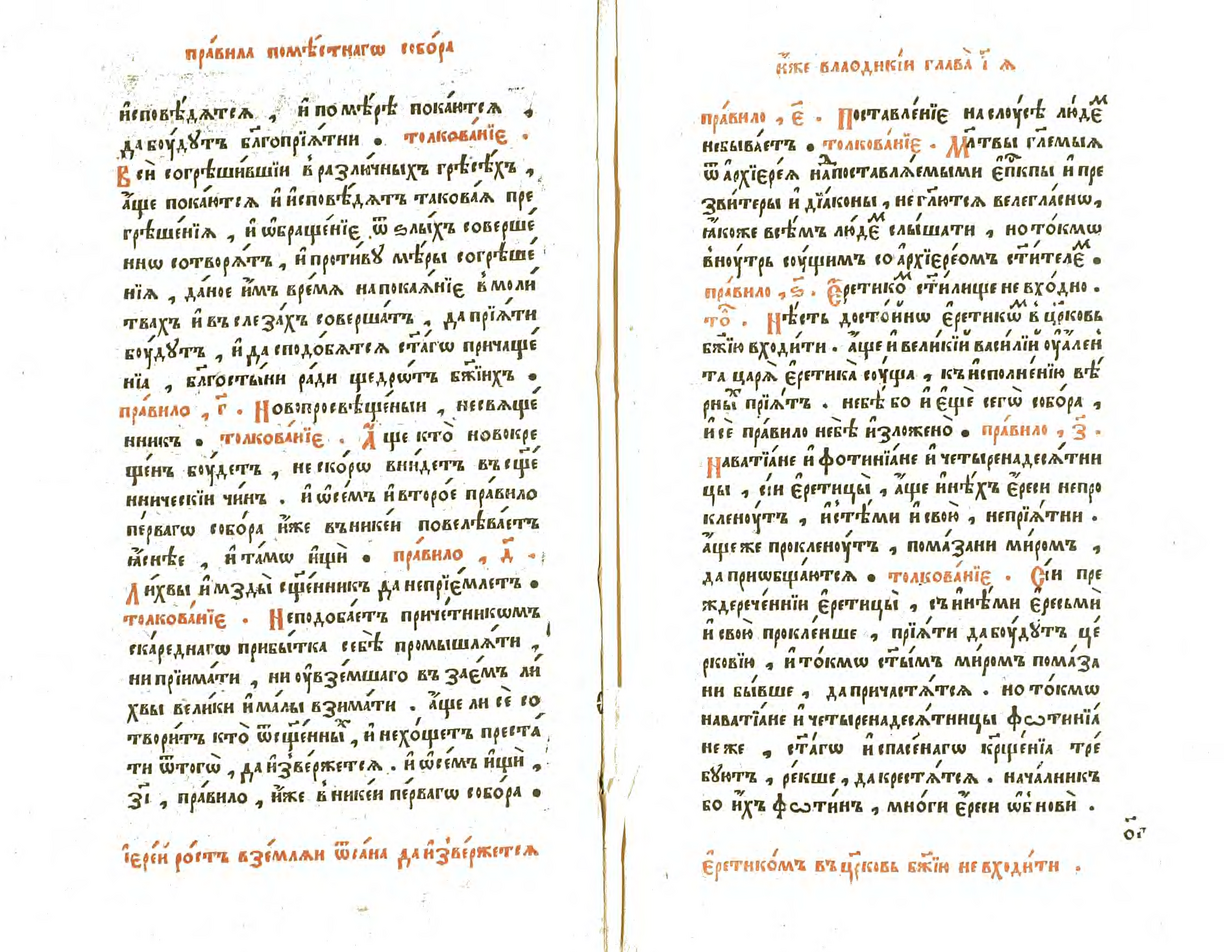 пра́вила помѣ́стнагѡ собо́ра
и҆сповѣ́дѧтсѧ , и҆ по мѣ́рѣ пока́ютсѧ ,
да бꙋ́дꙋтъ бл҃гопрїѧ́тни . толкова́нїе .
Всѝ согрѣши́вшїи в разли́чныхъ грѣсѣ́хъ ,
а҆́ще пока́ютсѧ и҆ и҆сповѣ́дѧтъ такова́ѧ пре
грѣше́нїѧ , и҆ ѡ҆браще́нїе ѿ ѕлы́хъ соверше́
ннѡ сотворѧ́тъ , и҆ проти́вꙋ мѣ́ры согрѣше́
нїѧ , да́ное и҆́мъ вре́мѧ на покаѧ́нїе в моли́
твахъ и҆ въ слеза́хъ соверша́тъ , да прїѧ́ти
бꙋ́дꙋтъ , и҆ да сподо́бѧтсѧ ст҃а́гѡ причаще́
нїа , бл҃госты́ни ра́ди щедро́тъ бж҃їихъ .
пра́вило , г҃ . Новопросвѣще́ныи , несвѧще́
нникъ . толкова́нїе . А҆́ще кто̀ новокре
ще́нъ бꙋ́детъ , не ско́рѡ вни́детъ въ сщ҃е́
нническїи чи́нъ . и҆ ѡ҆ се́мъ и҆ второ́е пра́вило
пе́рвагѡ собо́ра и҆́же въ нике́и повелѣва́етъ
ꙗ҆снѣ́е , и҆ та́мѡ и҆щѝ . пра́вило , д҃ .
Ли́хвы и҆ мзды̀ сщ҃е́нникъ да не прїе́млетъ .
толкова́нїе . Неподоба́етъ приче́тникѡмъ
ска́реднагѡ прибы́тка себѣ̀ промышлѧ́ти ,
ни прїима́ти , ни ᲂу҆взе́мшаго въ зае́мъ ли́
хвы вели́ки и҆ ма́лы взима́ти . а҆́ще ли сѐ со
твори́тъ кто̀ ѿ сщ҃е́нныⷯ , и҆ не хо́щетъ преста́
ти ѿ тогѡ̀ , да и҆зве́ржетсѧ . и҆ ѡ҆ се́мъ и҆щѝ ,
з҃і , пра́вило , и҆́же в нике́и пе́рвагѡ собо́ра .
і҆ере́й ро́стъ взе́млѧи ѿ са́на да и҆зве́ржетсѧ
и҆́же в лаодикі́и глава̀ і҃ ѧ
пра́вило , е҃ . Поставле́нїе на слꙋ́сѣ лю́деⷨ
не быва́етъ . толкова́нїе . Мл҃твы гл҃емыѧ
ѿ а҆рхїере́ѧ над поставлѧ́емыми е҆пⷭ҇кпы и҆ пре
зви́теры и҆ дїа́коны , не гл҃ютсѧ велегла́снѡ ,
ꙗ҆́коже всѣ́мъ лю́деⷨ слы́шати , но то́кмѡ
внꙋ́трь сꙋ́щимъ со а҆рхїере́омъ ст҃и́телеⷨ .
пра́вило , ѕ҃ . Е҆ретико́ⷨ ст҃и́лище не вхо́дно .
то҃ . Нѣ́сть досто́йнѡ е҆ретикѡ́ⷨ в цр҃ковь
бж҃їю входи́ти . а҆́ще и҆ вели́кїй васи́лїй ᲂу҆але́н
та царѧ̀ е҆ретика̀ сꙋ́ща , къ и҆сполне́нїю вѣ́
рныⷯ прїѧ́тъ . не бѣ́ бо и҆ е҆щѐ сегѡ̀ собо́ра ,
и҆ сѐ пра́вило не бѣ̀ и҆зложено̀ . пра́вило , з҃ .
Наватїа́не и҆ фотинїа́не и҆ четыренадесѧ́тни
цы , сі́и е҆ретицы̀ , а҆́ще и҆нѣ́хъ е҆́реси не про
кленꙋ́тъ , и҆ с тѣ́ми и҆ свою̀ , непрїѧ́тни .
а҆́ще же прокленꙋ́тъ , пома́зани мѵ́ромъ ,
да приѡбща́ютсѧ . толкова́нїе . Сі́и пре
ждерече́ннїи е҆ретицы̀ , съ и҆нѣ́ми е҆ресьмѝ
и҆ свою̀ прокле́нше , прїѧ́ти да бꙋ́дꙋтъ це́
рковїю , и҆ то́кмѡ ст҃ы́мъ ми́ромъ пома́за
ни бы́вше , да причастѧ́тсѧ . но то́кмѡ
наватїа́не и҆ четыренадесѧ́тницы фѡтинїа́
не же , ст҃а́гѡ и҆ спасе́нагѡ крⷭ҇ще́нїа тре́
бꙋютъ , ре́кше , да крестѧ́тсѧ . нача́лникъ
бо и҆́хъ фѡти́нъ , мно́ги е҆́реси ѡ҆бновѝ .
ог҃
е҆ретико́мъ въ цр҃ковь бж҃їю не входи́ти .